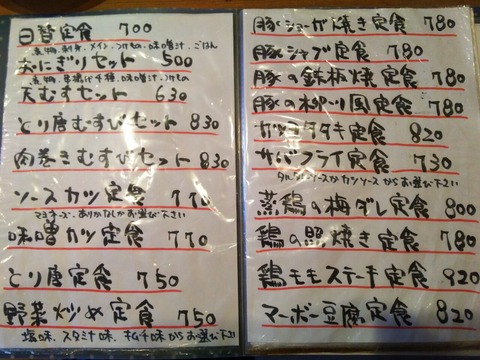 日替定食 700
煮物、刺身、メイン、つけもの、味噌汁、ごはん
おにぎりセット 500
煮物、串揚げ2種、味噌汁、つけもの
天むすセット 630
とり唐むすびセット 830
肉巻きむすびセット 830
ソースカツ定食 770
マヨネーズありかなしかお選び下さい
味噌カツ定食 770
とり唐定食 750
野菜炒め定食 750
塩味、スタミナ味、キムチ味からお選び下さい
豚ショーガ焼き定食 780
豚シャブ定食 780
豚の鉄板焼定食 780
豚の柳川風定食 780
カツオタタキ定食 820
サバフライ定食 730
タルタルソースかカツソースからお選び下さい
蒸鶏の梅ダレ定食 800
鶏の照焼き定食 780
鶏モモステーキ定食 820
マーボー豆腐定食 820